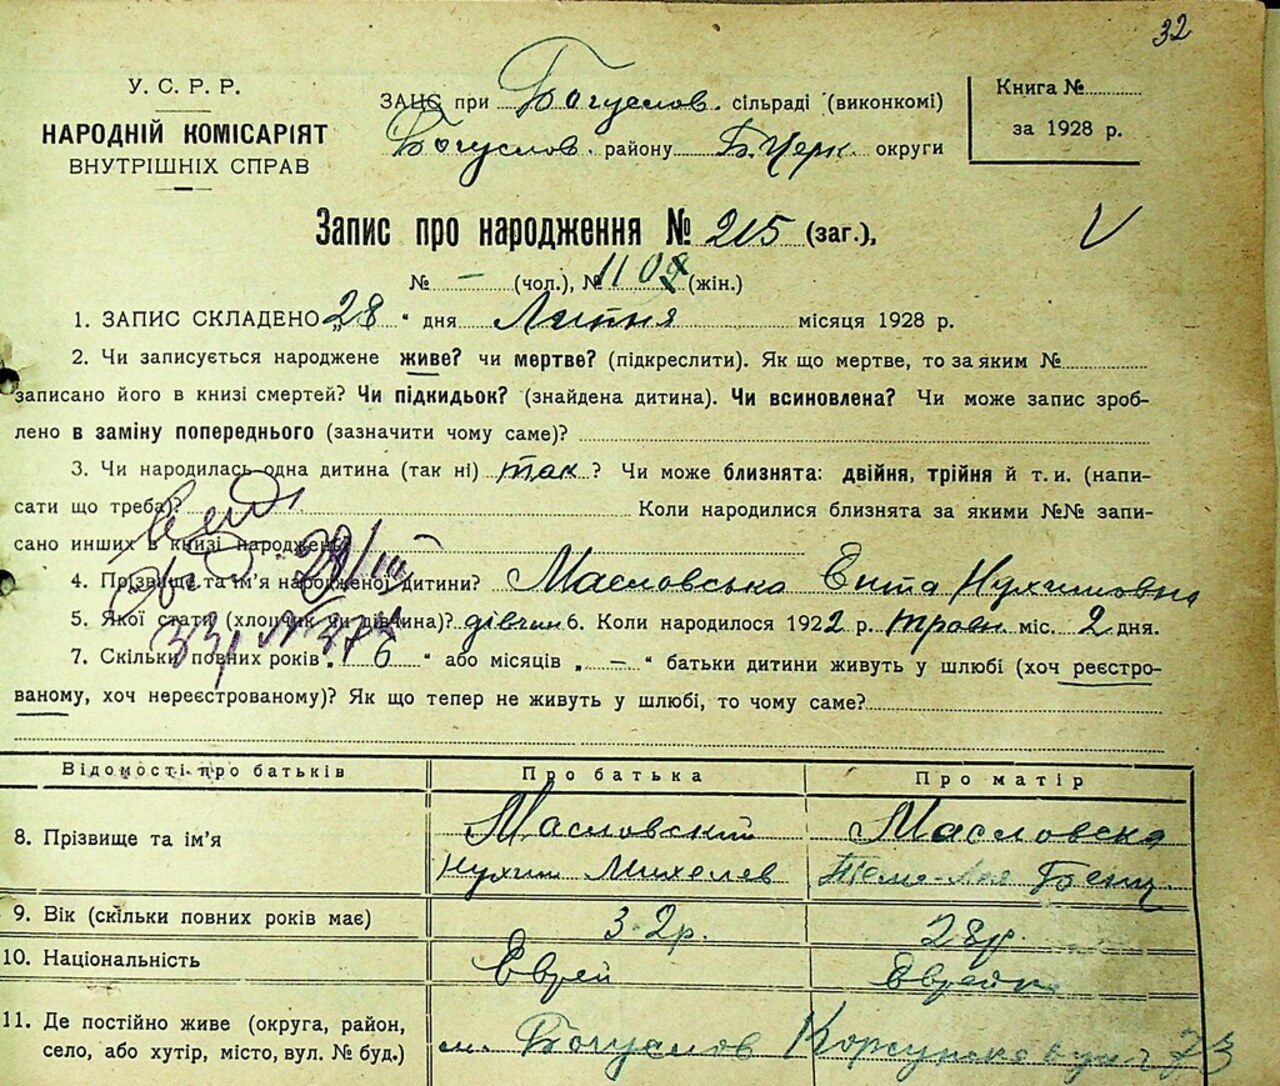 32
У. С. Р. Р.
НАРОДНІЙ КОМІСАРІЯТ
ВНУТРІШНІХ СПРАВ
ЗАЦС при Богуслов. сільраді (виконкомі)
Богуслов. району Б. Церк. округи
Книга №
за 1928 р.
Запис про народження № 215 (заг.),
№ – (чол.), № 110 (жін.)
1. ЗАПИС СКЛАДЕНО „28 “ дня Липня місяця 1928 р.
2. Чи записується народжене живе? чи мертве? (підкреслити). Як що мертве, то за яким №
записано його в книзі смертей? Чи підкидьок? (знайдена дитина). Чи всиновлена? Чи може запис зроб-
лено в заміну попереднього (зазначити чому саме)?
3. Чи народилась одна дитина (так ні) так ? Чи може близнята: двійня, трійня й т. и. (напи-
сати що треба)? Коли народилися близнята за якими №№ запи-
сано инших в книзі народжень?
4. Прізвище та ім'я народженої дитини? Масловська Ента Нухимовна
5. Якої стати (хлопчик чи дівчина)? дівчин 6. Коли народилося 1922 р. травн. міс. 2 дня.
7. Скільки повних років „ 6 “ або місяців „ – “ батьки дитини живуть у шлюбі (хоч реєстро-
ваному, хоч нереєстрованому)? Як що тепер не живуть у шлюбі, то чому саме?
Відомості про батьків Про батька Про матір
8. Прізвище та ім'я Масловский Масловска
Нухим Михелев Бенц.
9. Вік (скільки повних років має) 32р. 28р.
10. Національність Єврей Єврейка
11. Де постійно живе (округа, район,
село, або хутір, місто, вул. № буд.) м. Богуслов Корсунска вул 73